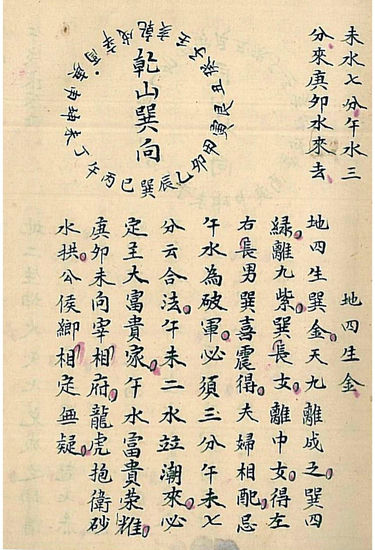 未水七分午水三
分來庚夘水來去
乾山巽向
壬子癸丑艮寅甲卯乙辰巽巳丙午丁未坤申庚酉辛戌乾亥
地四生金
地四生巽金天九離成之巽四
綠離九紫巽長女離中女得左
右長男巽喜震得夫婦相配忌
午水為破軍必須三分午未七
分云合法午未二水竝潮來必
定至大富貴家午水富貴荣
庚夘未向宰相府龍虎抱衛砂
水拱公侯卿相定無疑